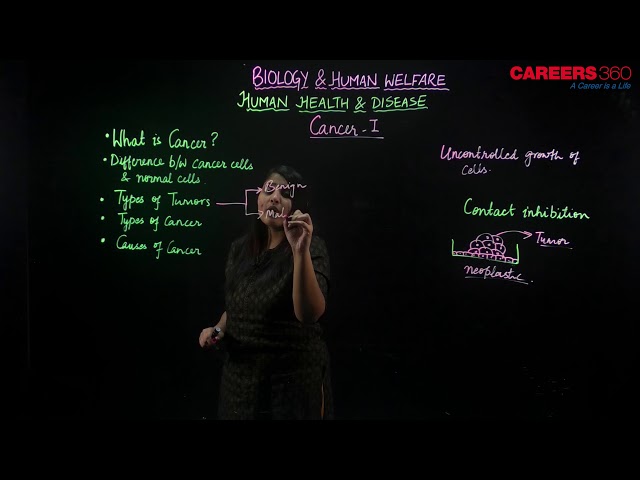 CAREERS360
A Career is a Life
BIOLOGY & HUMAN WELFARE
HUMAN HEALTH & DISEASE
Cancer - I
• What is Cancer?
• Difference b/w cancer cells
& normal cells.
• Types of Tumors
Benign
Mal
• Types of Cancer
• Causes of Cancer
Uncontrolled growth of
cells.
Contact inhibition
Tumor
neoplastic